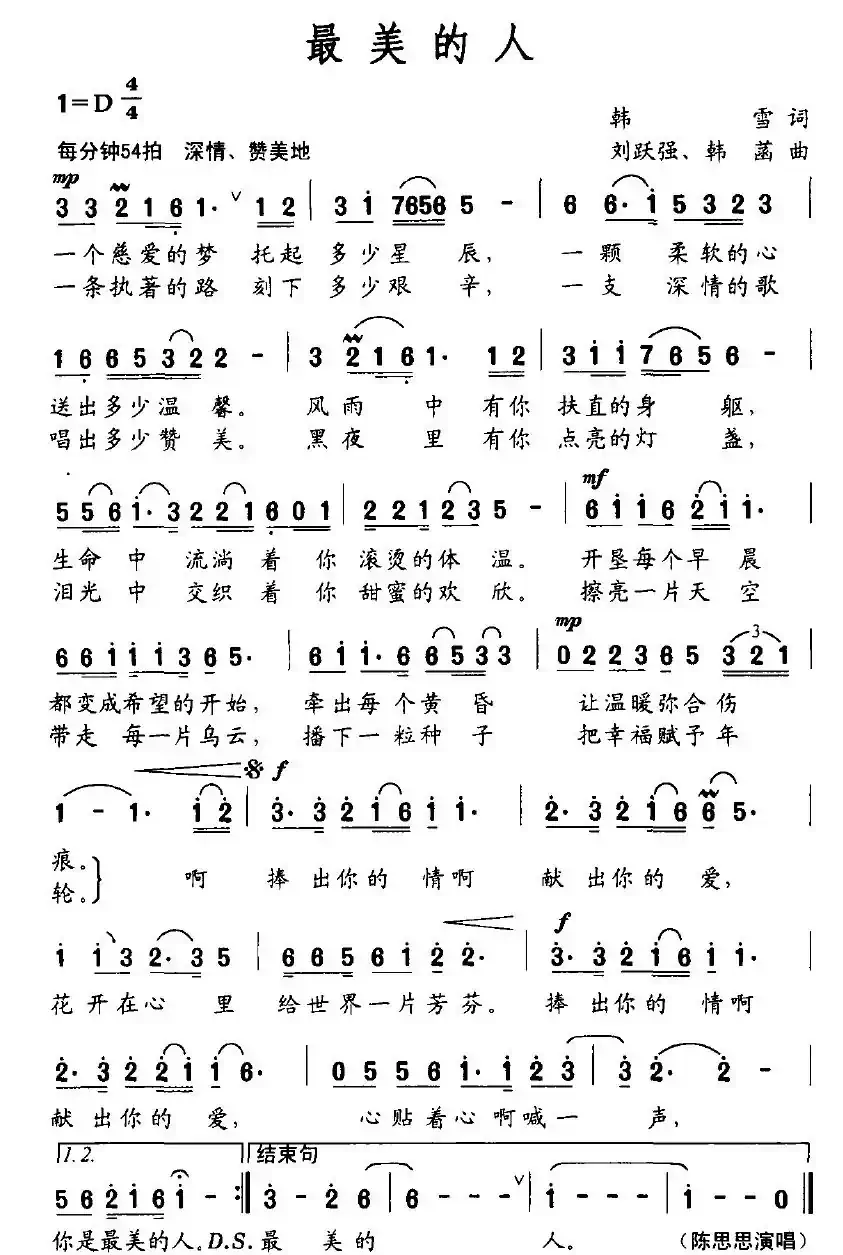 最美的人
1=D 4/4
韩 雪 词
每分钟54拍 深情、赞美地
刘跃强、韩 菡 曲
mp
3 3 2 1 6 1· ∨ 1 2 | 3 1 7656 5 - | 6 6· 1 5 3 2 3
一个慈爱的梦 托起 多少星 辰, 一颗 柔软的心
一条执著的路 刻下 多少艰 辛, 一支 深情的歌
1 6 6 5 3 2 2 2 - | 3 2 1 6 1· 1 2 | 3 1 1 7 6 5 6 -
送出多少温 馨。 风雨 中 有你 扶直的身 躯,
唱出多少赞 美。 黑夜 里 有你 点亮的灯 盏,
mf
5 5 6 1· 3 2 2 2 1 6 0 1 | 2 2 1 2 3 5 - | 6 1 1 6 2 1 1·
生命 中 流淌 着 你 滚烫的体 温。 开垦每个早 晨
泪光 中 交织 着 你 甜蜜的欢 欣。 擦亮一片天 空
mp
6 6 1 1 1 3 6 5· | 6 1 1· 6 6 5 3 3 | 0 2 2 3 6 5 3 2 1
3
都变成希望的开始, 牵出每 个黄 昏 让温暖弥合伤
带走 每一片乌云, 播下一 粒种 子 把幸福赋予年
f
1 - 1· 1 2 | 3· 3 2 1 6 1 1· | 2· 3 2 1 6 6 5·
痕。
轮。
啊 捧 出你的 情啊 献 出你的 爱,
f
1 1 3 2· 3 5 | 6 6 5 6 1 2 2· | 3· 3 2 1 6 1 1·
花 开在心 里 给世界一片芳芬。 捧 出你的 情啊
2· 3 2 2 1 1 6· | 0 5 5 6 1· 1 2 3 | 3 2· 2 -
献 出你的 爱, 心贴着心 啊喊一 声,
1. 2. 结束句
5 6 2 1 6 1 - :‖ 3 - 2 6 | 6 - - - ∨ | 1 - - - | 1 - - 0 ‖
你是最美的人。D.S.最 美的 人。 (陈思思演唱)